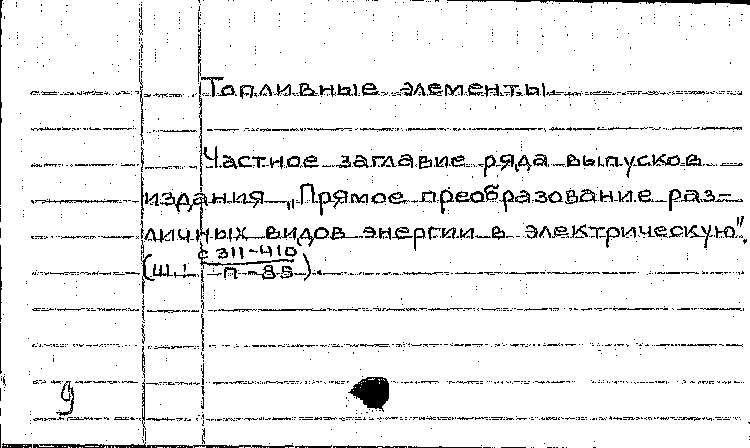 Топливные элементы.
Частное заглавие ряда выпусков
издания „Прямое преобразование раз-
личных видов энергии в электрическую".
с 311-410
(Ш.: п-85).
9